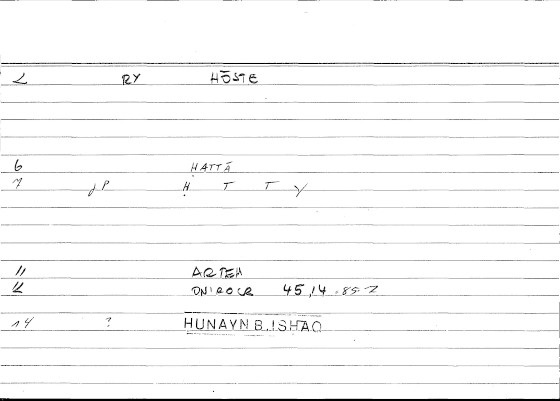 2 RY HŌSTE
6 ḤATTĀ
7 jP Ḥ T T Y
11 ARTEM
12 ONIROCR 45,14 - 85.2
14 ? HUNAYN B. ISHAQ